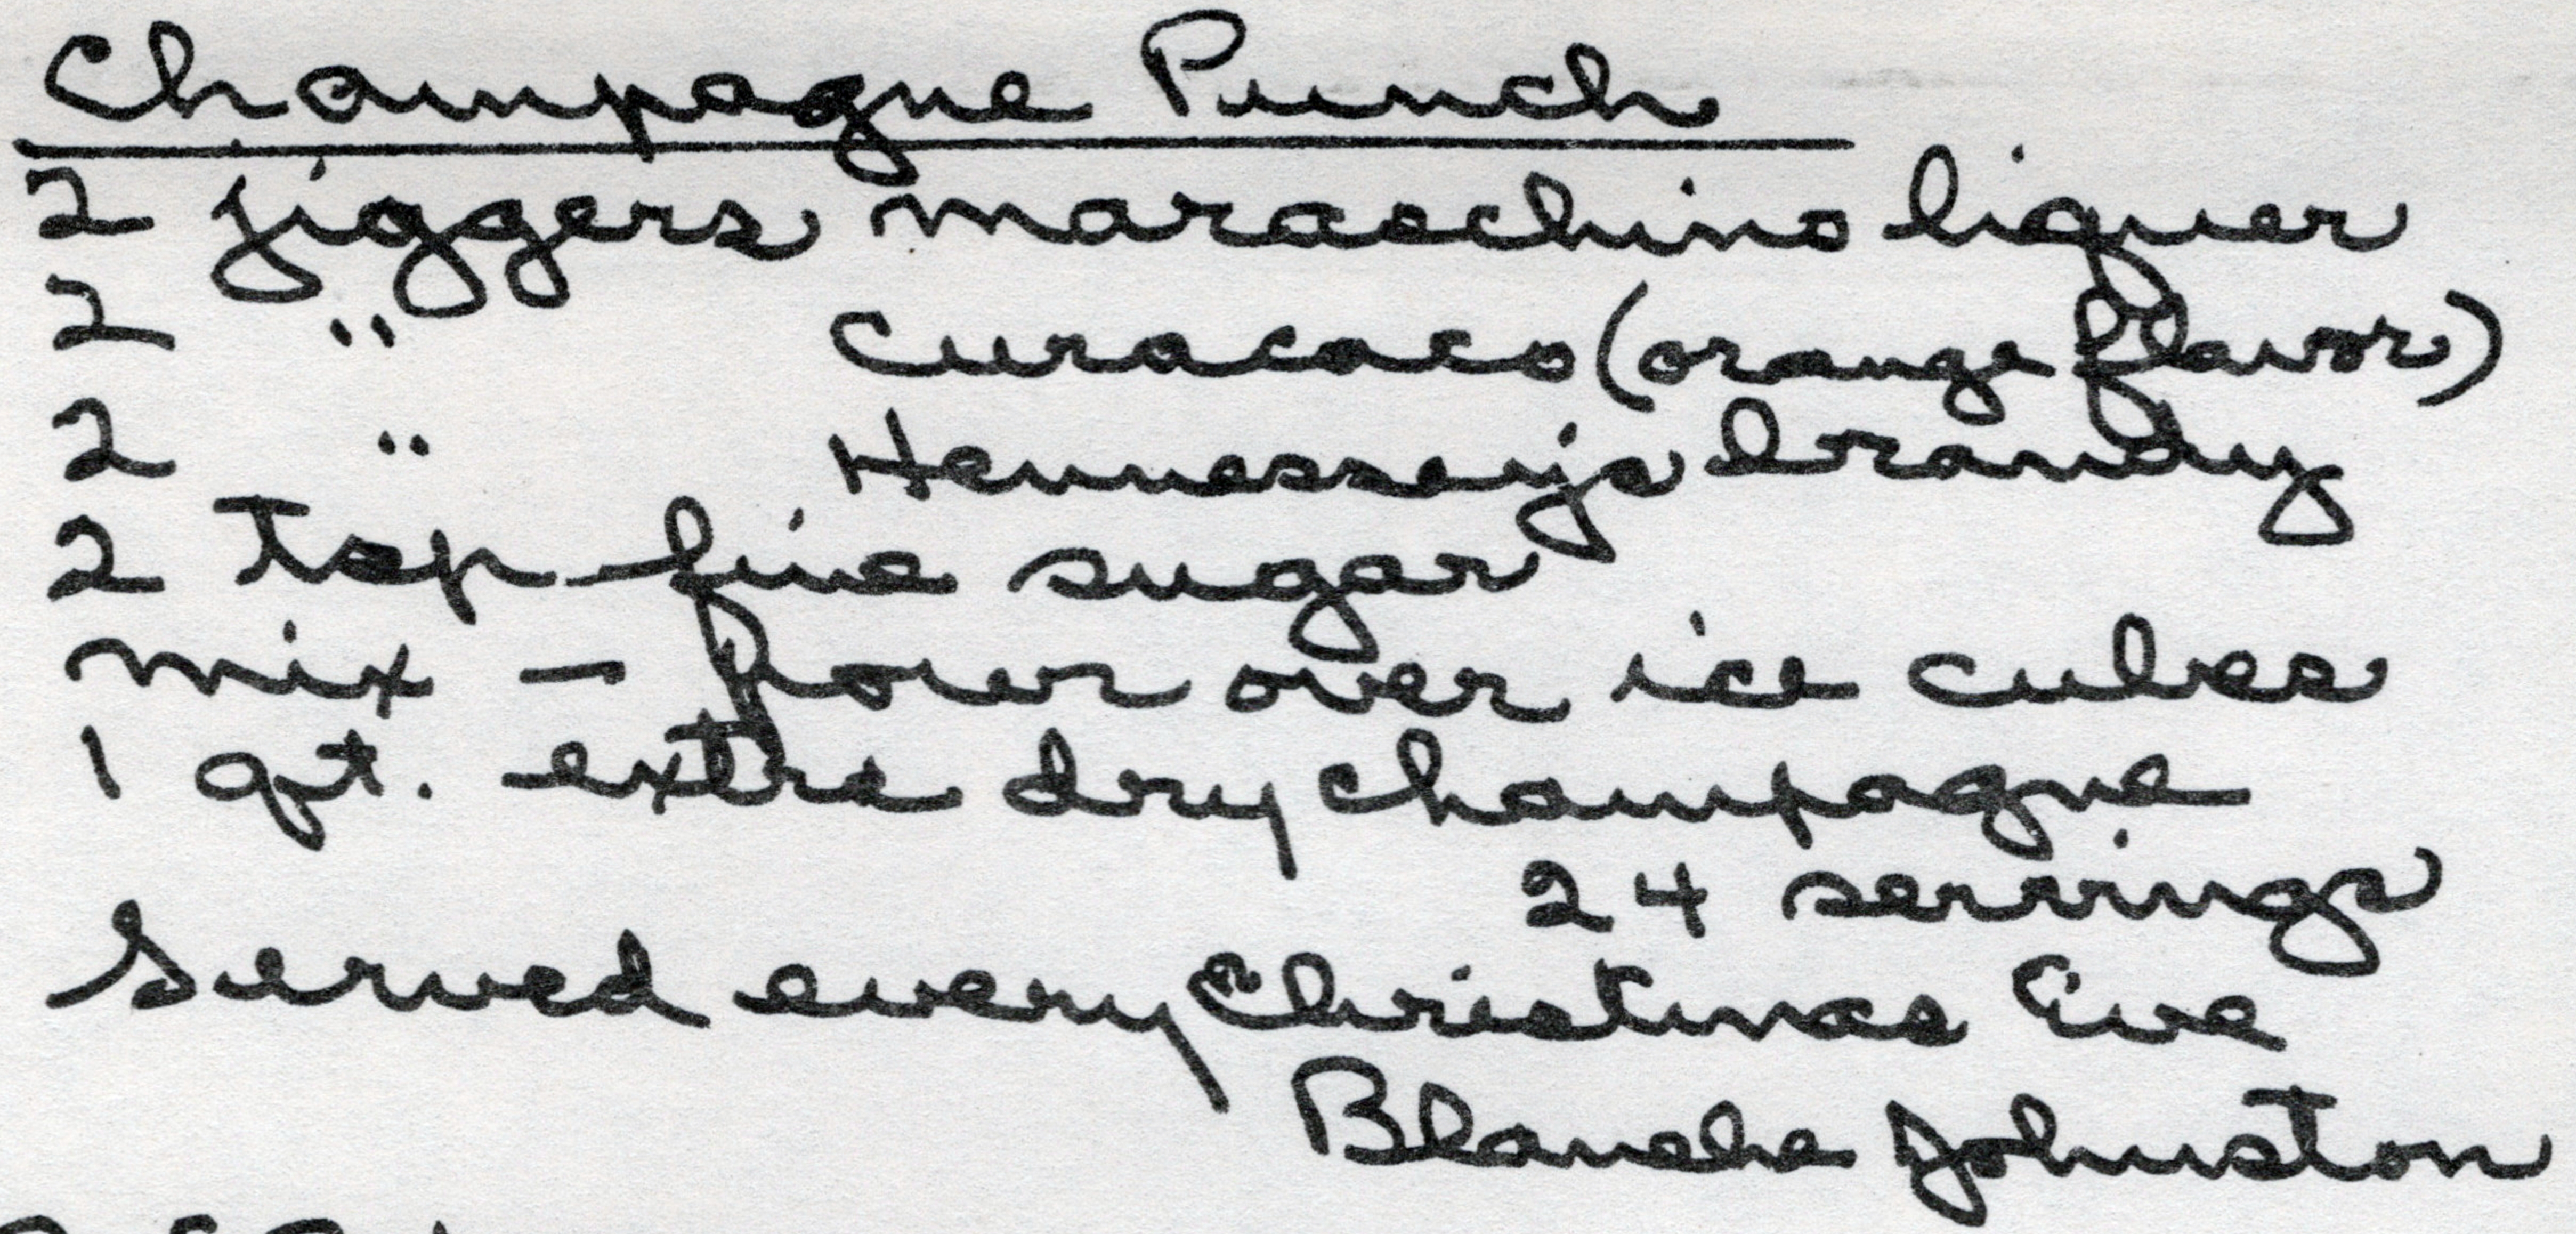 Champagne Punch
2 jiggers maraschino liquer
2 " Curacaco (orange flavor)
2 " Hennessey's brandy
2 tsp fine sugar
mix - pour over ice cubes
1 qt. extra dry champagne
24 servings
Served every Christmas Eve
Blanche Johnston